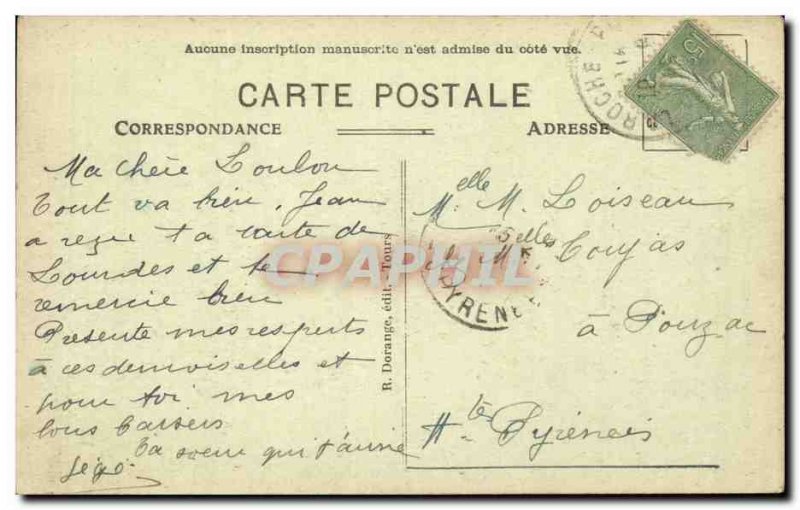 Aucune inscription manuscrite n'est admise du côté vue.
CARTE POSTALE
CORRESPONDANCE
ADRESSE
Ma chère Loulou
Tout va bien. Jean
a reçu ta carte de
Lourdes et te
remercie bien
Presente mes respects
à ces demoiselles et
pour toi mes
bons baisers
Ta soeur qui t'aime
R. Dorange, édit. - Tours
Melle M. Loiseau
elles
à Pouzac
Htes Pyrénées
15c
ROCH
PYRENEES
CPAPHIL